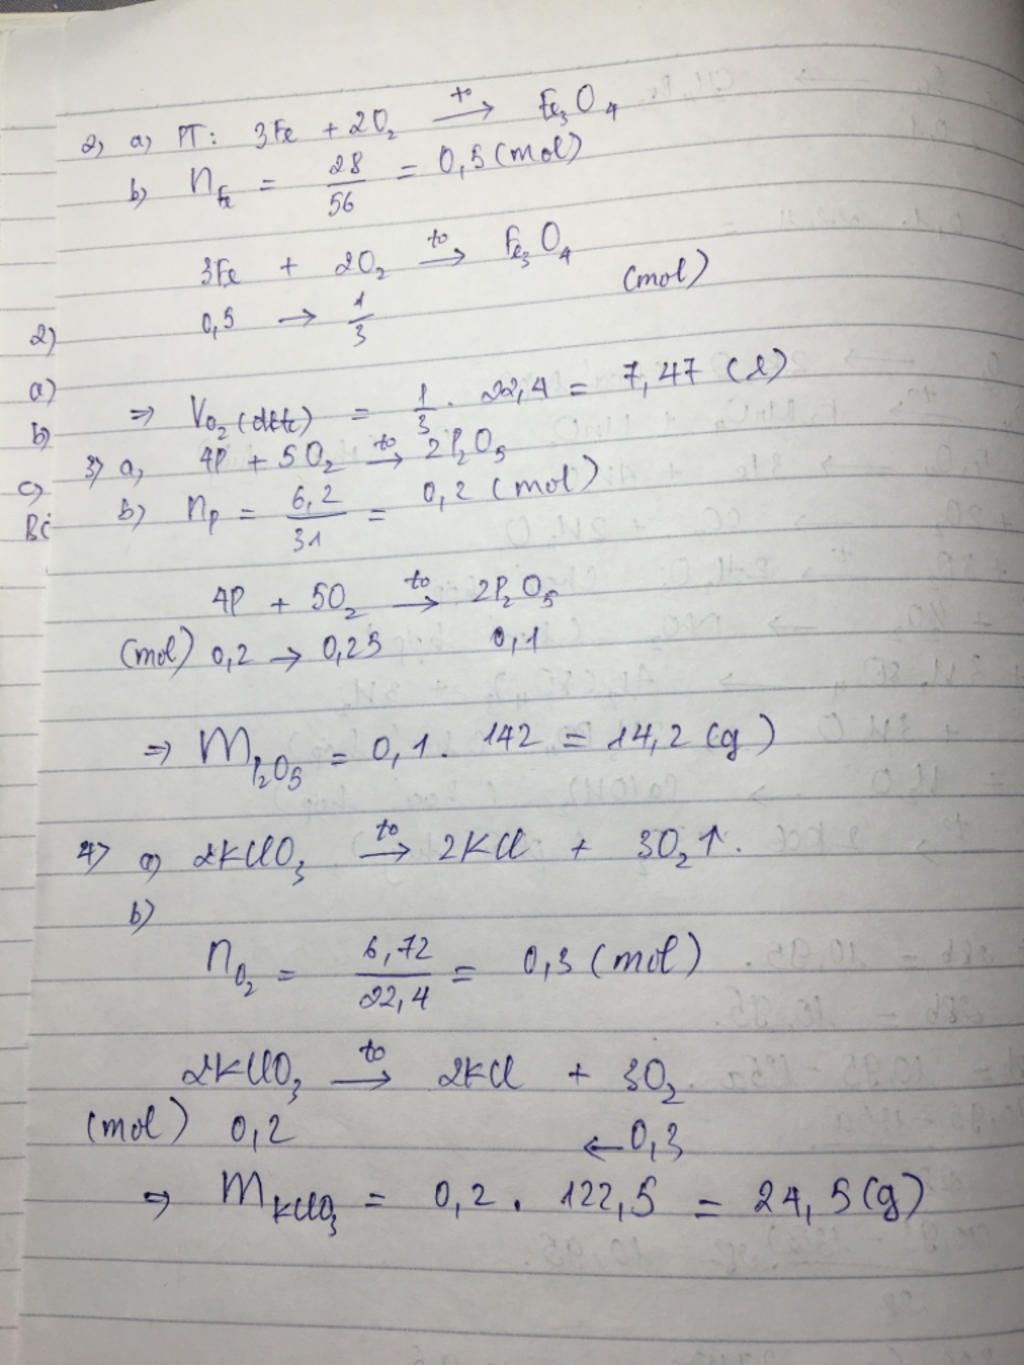 2, a, PT: 3Fe + 2O₂ —t⁰→ Fe₃O₄
b) n_Fe = 28/56 = 0,5 (mol)
3Fe + 2O₂ —t⁰→ Fe₃O₄
0,5 → 1/3 (mol)
2)
a)
b)
c)
⇒ V_O₂ (đktc) = 1/3 . 22,4 = 7,47 (l)
3) a, 4P + 5O₂ —t⁰→ 2P₂O₅
b) n_P = 6,2/31 = 0,2 (mol)
4P + 5O₂ —t⁰→ 2P₂O₅
(mol) 0,2 → 0,25 0,1
⇒ m_P₂O₅ = 0,1 . 142 = 14,2 (g)
4) a) 2KClO₃ —t⁰→ 2KCl + 3O₂↑.
b)
n_O₂ = 6,72/22,4 = 0,3 (mol)
2KClO₃ —t⁰→ 2KCl + 3O₂
(mol) 0,2 ← 0,3
⇒ m_KClO₃ = 0,2 . 122,5 = 24,5 (g)